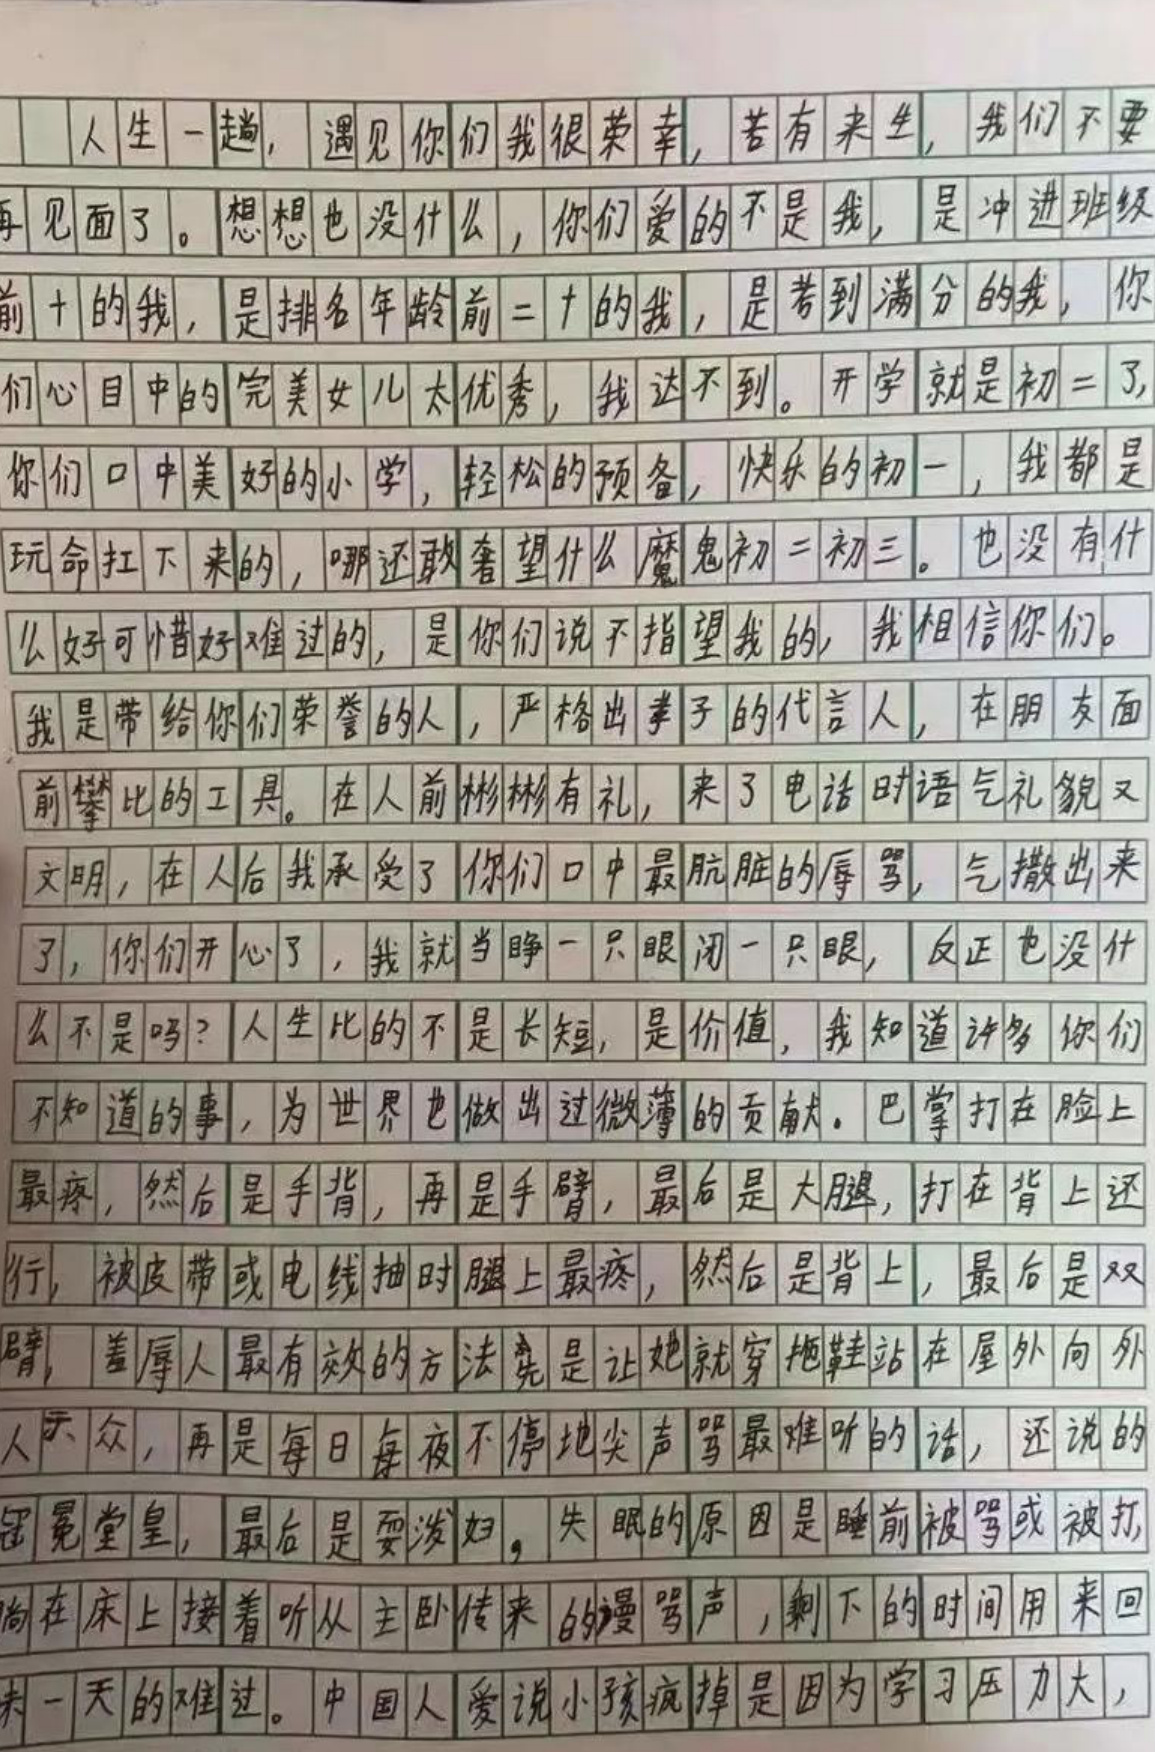 人生一趟，遇见你们我很荣幸，若有来生，我们不要
再见面了。想想也没什么，你们爱的不是我，是冲进班级
前十的我，是排名年龄前二十的我，是考到满分的我，你
们心目中的完美女儿太优秀，我达不到。开学就是初二了，
你们口中美好的小学，轻松的预备，快乐的初一，我都是
玩命扛下来的，哪还敢奢望什么魔鬼初二初三。也没有什
么好可惜好难过的，是你们说不指望我的，我相信你们。
我是带给你们荣誉的人，严格出孝子的代言人，在朋友面
前攀比的工具。在人前彬彬有礼，来了电话时语气礼貌又
文明，在人后我承受了你们口中最肮脏的辱骂，气撒出来
了，你们开心了，我就当睁一只眼闭一只眼，反正也没什
么不是吗？人生比的不是长短，是价值，我知道许多你们
不知道的事，为世界也做出过微薄的贡献。巴掌打在脸上
最疼，然后是手背，再是手臂，最后是大腿，打在背上还
行，被皮带或电线抽时腿上最疼，然后是背上，最后是双
臂，羞辱人最有效的方法先是让她就穿拖鞋站在屋外向外
人示众，再是每日每夜不停地尖声骂最难听的话，还说的
冠冕堂皇，最后是耍泼妇。失眠的原因是睡前被骂或被打，
躺在床上接着听从主卧传来的谩骂声，剩下的时间用来回
味一天的难过。中国人爱说小孩疯掉是因为学习压力大，